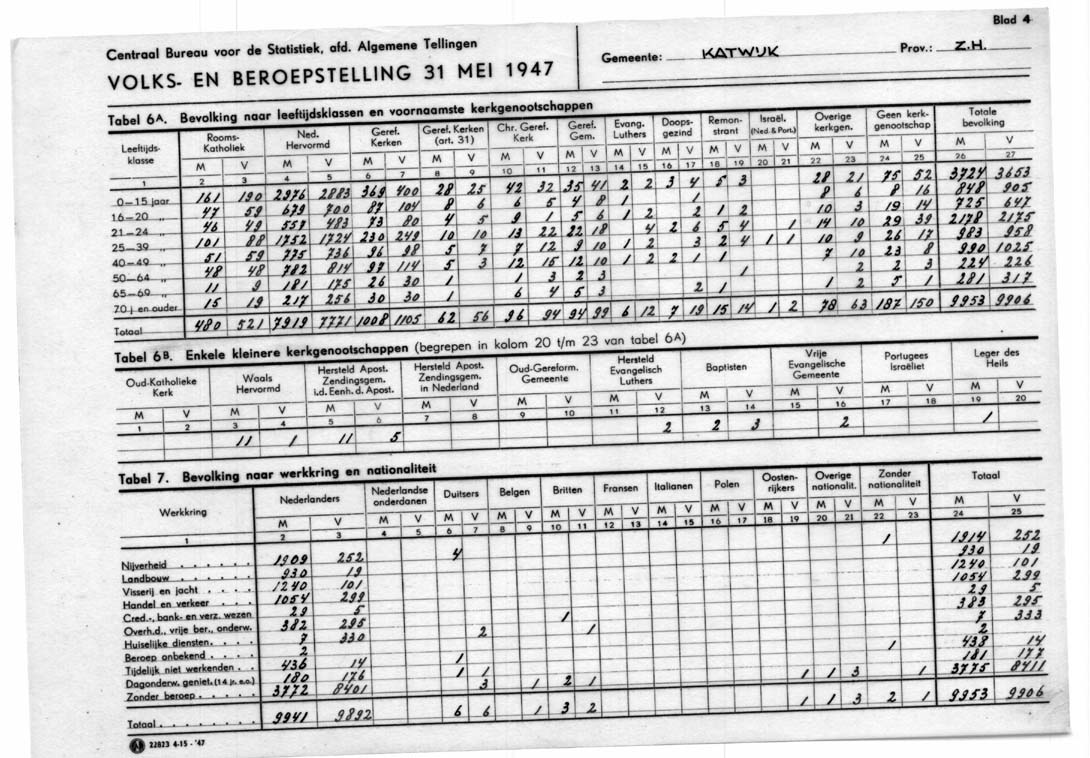 Blad 4
Centraal Bureau voor de Statistiek, afd. Algemene Tellingen
Gemeente: KATWIJK Prov.: Z.H.
VOLKS- EN BEROEPSTELLING 31 MEI 1947
Tabel 6A. Bevolking naar leeftijdsklassen en voornaamste kerkgenootschappen
Leeftijdsklasse | Rooms-Katholiek | Ned. Hervormd | Geref. Kerken | Geref. Kerken (art. 31) | Chr. Geref. Kerk | Geref. Gem. | Evang. Luthers | Doopsgezind | Remonstrant | Israël. (Ned. & Port.) | Overige kerkgen. | Geen kerkgenootschap | Totale bevolking
M V M V M V M V M V M V M V M V M V M V M V M V M V
1 2 3 4 5 6 7 8 9 10 11 12 13 14 15 16 17 18 19 20 21 22 23 24 25 26 27
0—15 jaar 161 190 2976 2883 369 400 28 25 42 32 35 41 2 2 3 4 5 3 28 21 75 52 3724 3653
16—20 „ 47 59 679 700 87 104 8 6 6 5 4 8 1 1 8 6 8 16 848 905
21—24 „ 46 49 557 483 73 80 4 5 9 1 5 6 1 2 2 1 2 10 3 19 14 725 647
25—39 „ 101 88 1752 1724 230 249 10 10 13 22 22 18 4 2 6 5 4 1 14 10 29 39 2178 2175
40—49 „ 51 59 775 736 96 98 5 7 7 12 9 10 1 2 3 2 4 1 1 10 9 26 17 983 958
50—64 „ 48 48 782 814 97 114 5 3 12 15 12 10 1 2 2 1 1 7 10 23 8 990 1025
65—69 „ 11 9 181 175 26 30 1 1 3 2 3 1 2 2 3 224 226
70 j en ouder 15 19 217 256 30 30 1 6 4 5 3 2 1 1 2 5 1 281 317
Totaal 480 521 7919 7771 1008 1105 62 56 96 94 94 99 6 12 7 19 15 14 1 2 78 63 187 150 9953 9906
Tabel 6B. Enkele kleinere kerkgenootschappen (begrepen in kolom 20 t/m 23 van tabel 6A)
Oud-Katholieke Kerk | Waals Hervormd | Hersteld Apost. Zendingsgem. i.d. Eenh. d. Apost. | Hersteld Apost. Zendingsgem. in Nederland | Oud-Gereform. Gemeente | Hersteld Evangelisch Luthers | Baptisten | Vrije Evangelische Gemeente | Portugees Israëliet | Leger des Heils
M V M V M V M V M V M V M V M V M V M V
1 2 3 4 5 6 7 8 9 10 11 12 13 14 15 16 17 18 19 20
11 1 11 5 2 2 3 2 1
Tabel 7. Bevolking naar werkkring en nationaliteit
Werkkring | Nederlanders | Nederlandse onderdanen | Duitsers | Belgen | Britten | Fransen | Italianen | Polen | Oostenrijkers | Overige nationalit. | Zonder nationaliteit | Totaal
M V M V M V M V M V M V M V M V M V M V M V M V
1 2 3 4 5 6 7 8 9 10 11 12 13 14 15 16 17 18 19 20 21 22 23 24 25
Nijverheid 1909 252 4 1 1914 252
Landbouw 930 19 930 19
Visserij en jacht 1240 101 1240 101
Handel en verkeer 1054 299 1054 299
Cred.-, bank- en verz. wezen 29 5 29 5
Overh.d., vrije ber., onderw. 382 295 1 383 295
Huiselijke diensten 7 330 2 1 7 333
Beroep onbekend 2 2
Tijdelijk niet werkenden 436 14 1 1 438 14
Dagonderw. geniet. (14 jr. e.o.) 180 176 1 1 181 177
Zonder beroep 3772 8401 3 1 2 1 1 1 3 1 3775 8411
Totaal 9941 9892 6 6 1 3 2 1 1 3 2 1 9953 9906
22823 4-15-'47